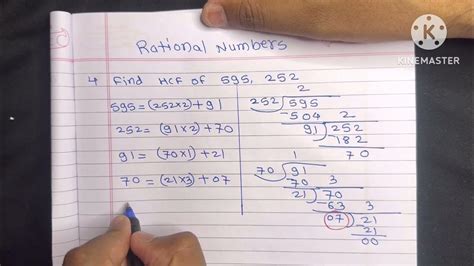 KINEMASTER
Rational Numbers
4 Find HCF of 595, 252
595=(252×2)+91
252=(91×2)+70
91=(70×1)+21
70=(21×3)+07
2
252)595
504 2
91)252
182
70
1
70)91
70 3
21)70
63 3
07)21
21
00